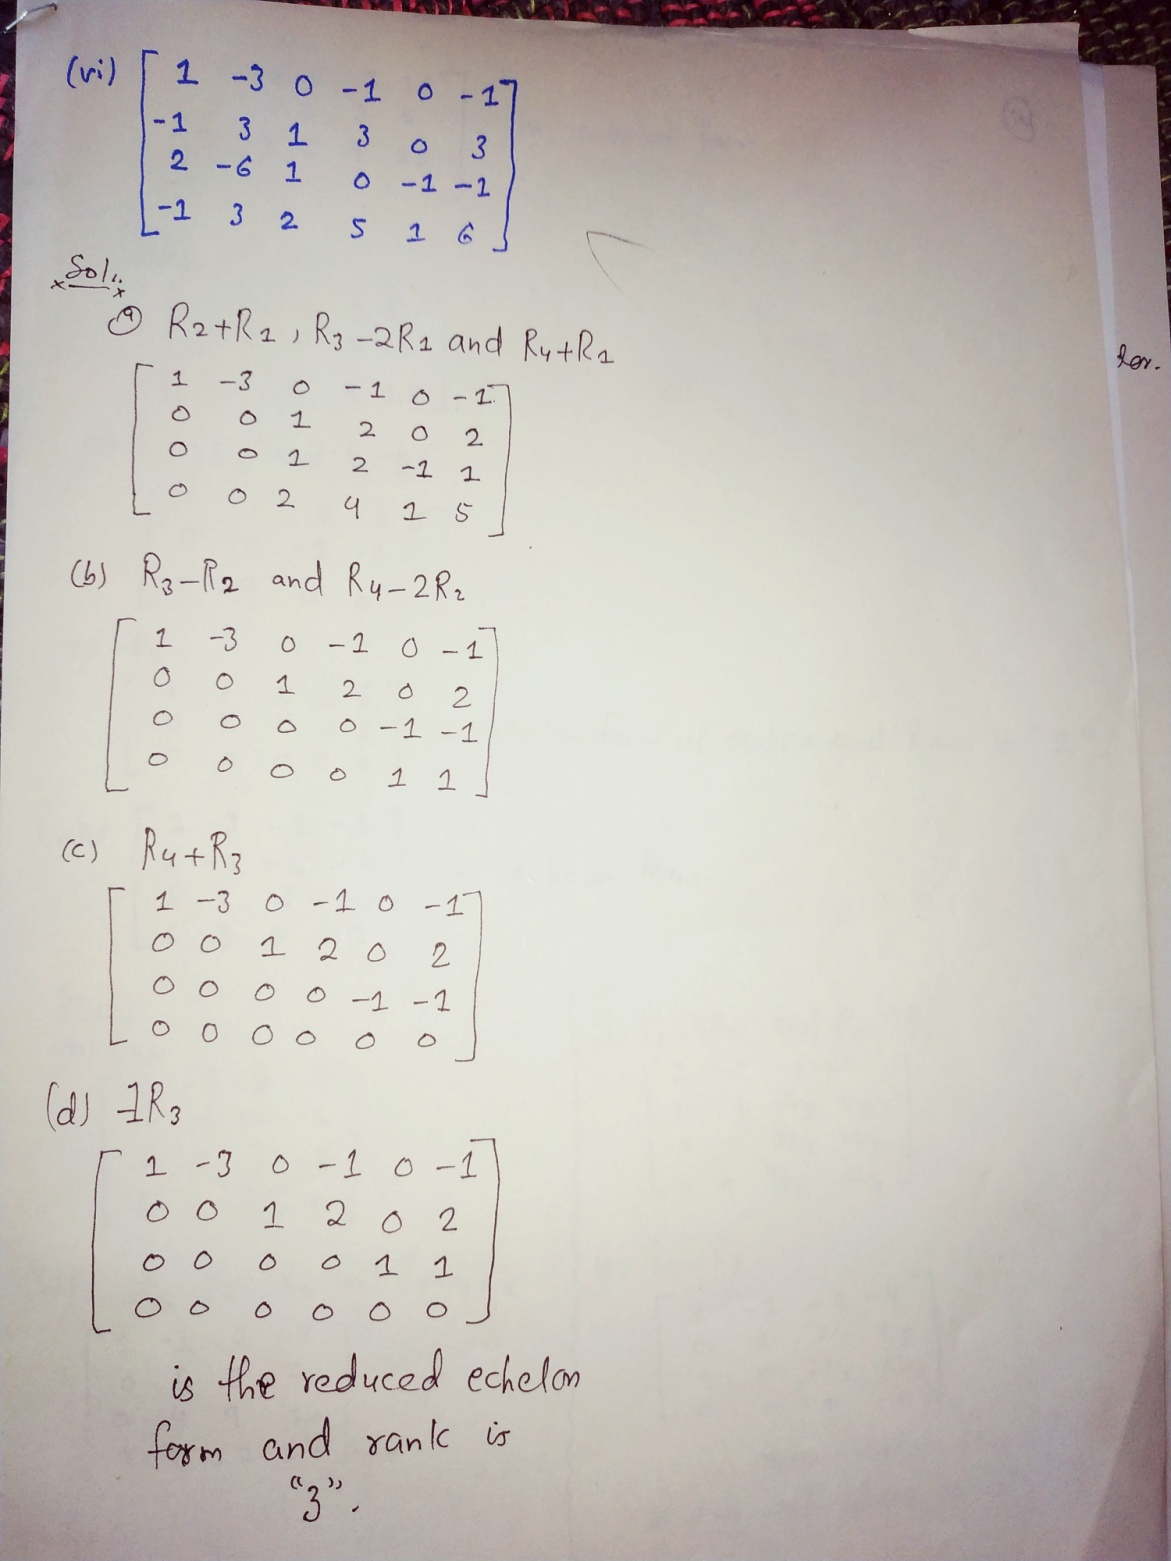 (vi) [ 1 -3 0 -1 0 -1 ]
-1 3 1 3 0 3
2 -6 1 0 -1 -1
-1 3 2 5 1 6
Sol.
(a) R2+R1, R3-2R1 and R4+R1
1 -3 0 -1 0 -1
0 0 1 2 0 2
0 0 1 2 -1 1
0 0 2 4 1 5
(b) R3-R2 and R4-2R2
1 -3 0 -1 0 -1
0 0 1 2 0 2
0 0 0 0 -1 -1
0 0 0 0 1 1
(c) R4+R3
1 -3 0 -1 0 -1
0 0 1 2 0 2
0 0 0 0 -1 -1
0 0 0 0 0 0
(d) -1R3
1 -3 0 -1 0 -1
0 0 1 2 0 2
0 0 0 0 1 1
0 0 0 0 0 0
is the reduced echelon
form and rank is
"3".